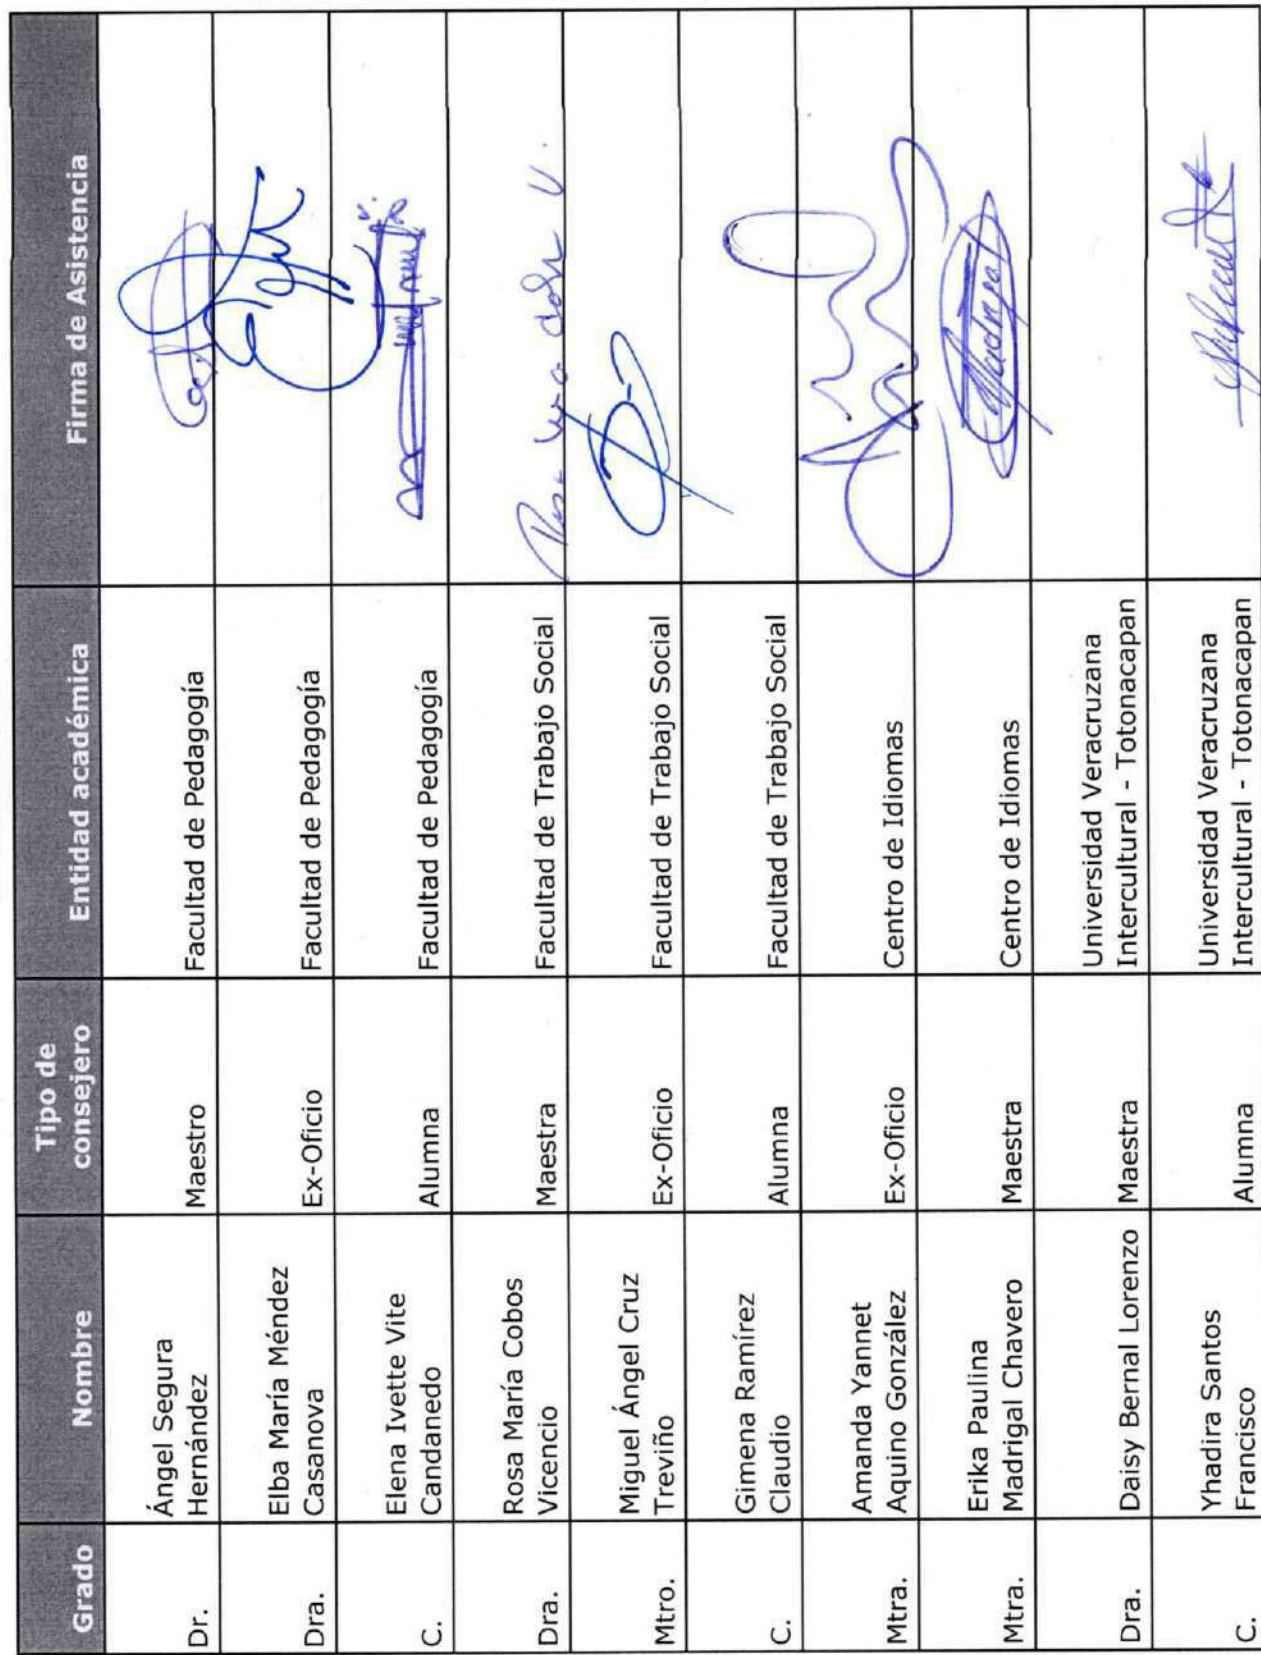 Grado Nombre Tipo de consejero Entidad académica Firma de Asistencia
Dr. Ángel Segura Hernández Maestro Facultad de Pedagogía
Dra. Elba María Méndez Casanova Ex-Oficio Facultad de Pedagogía
C. Elena Ivette Vite Candanedo Alumna Facultad de Pedagogía
Dra. Rosa María Cobos Vicencio Maestra Facultad de Trabajo Social
Mtro. Miguel Ángel Cruz Treviño Ex-Oficio Facultad de Trabajo Social
C. Gimena Ramírez Claudio Alumna Facultad de Trabajo Social
Mtra. Amanda Yannet Aquino González Ex-Oficio Centro de Idiomas
Mtra. Erika Paulina Madrigal Chavero Maestra Centro de Idiomas Madrigal
Dra. Daisy Bernal Lorenzo Maestra Universidad Veracruzana Intercultural - Totonacapan
C. Yhadira Santos Francisco Alumna Universidad Veracruzana Intercultural - Totonacapan